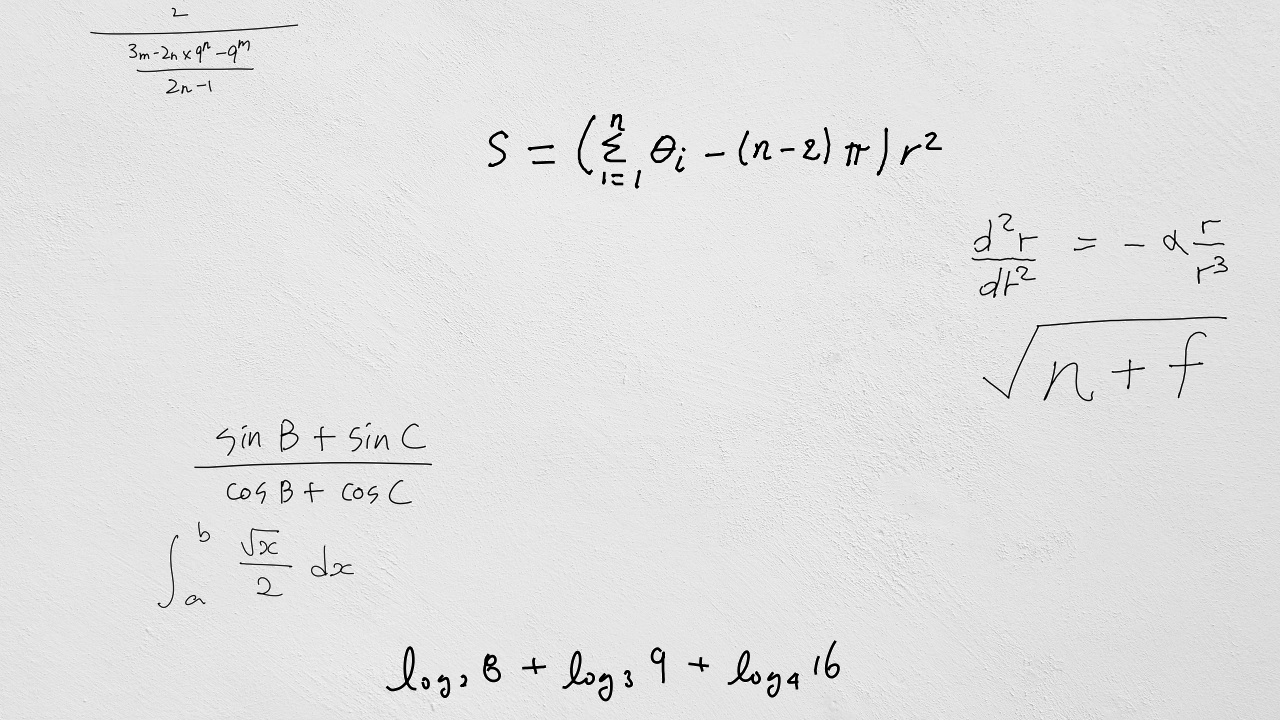 \frac{2}{\frac{3m-2n \times 9^n - 9^m}{2n-1}}
S = (\sum_{i=1}^{n} θ_i - (n-2) π) r^2
\frac{d^2 r}{dt^2} = - α \frac{r}{r^3}
\sqrt{n + f}
\frac{sin B + sin C}{cos B + cos C}
\int_a^b \frac{\sqrt{x}}{2} dx
log_2 8 + log_3 9 + log_4 16